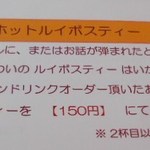 ホットルイボスティー
ルに、またはお話が弾まれたと
わいの ルイボスティー はいか
ンドリンクオーダー頂いたあ
ィーを 【150円】 にて
※ 2杯目以